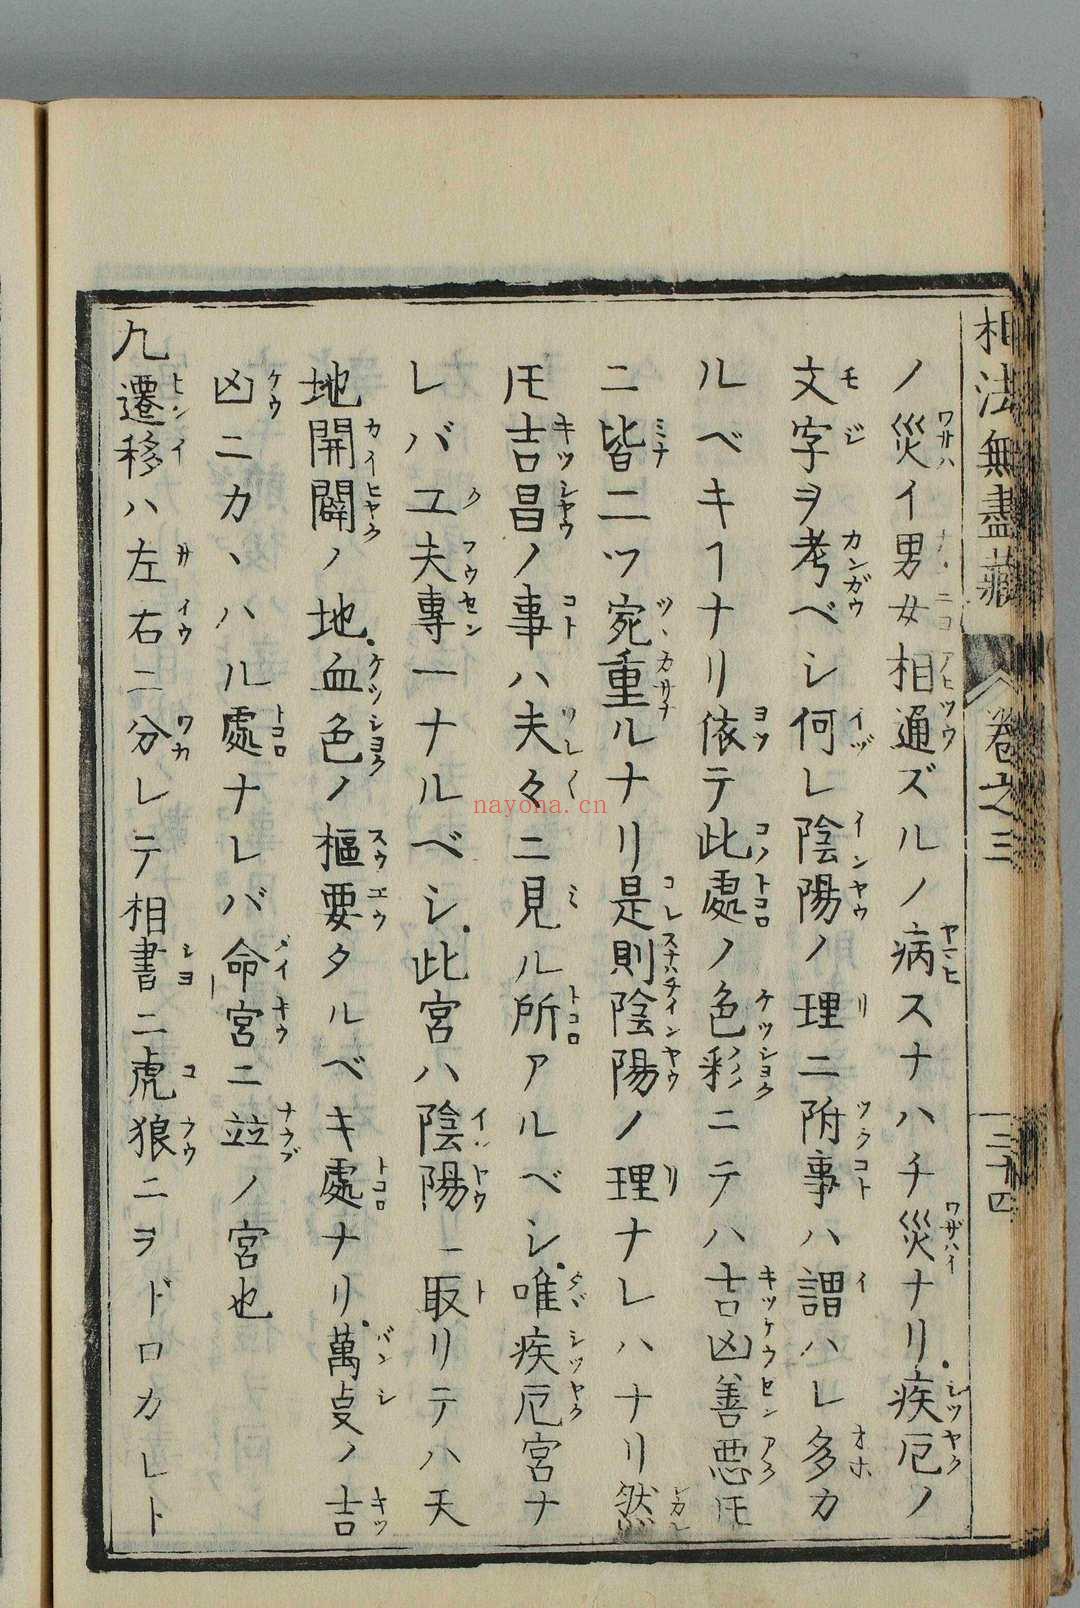 相法無盡藏 卷之三 三十四
ノ災イ男女相通ズルノ病スナハチ災ナリ疾厄ノ
文字ヲ考ベシ何レ陰陽ノ理ニ附事ハ謂ハレ多カ
ルベキヿナリ依テ此處ノ色彩ニテハ吉凶善悪𪜈
ニ皆二ツ宛重ルナリ是則陰陽ノ理ナレハナリ然
𪜈吉昌ノ事ハ夫々ニ見ル所アルベシ唯疾厄宮ナ
レバ工夫專一ナルベシ此宮ハ陰陽ニ取リテハ天
地開闢ノ地血色ノ樞要タルベキ處ナリ萬㕝ノ吉
凶ニカヽハル處ナレバ命宮ニ竝ノ宮也
九遷移ハ左右ニ分レテ相書ニ虎狼ニヲドロカレト
nayona.cn